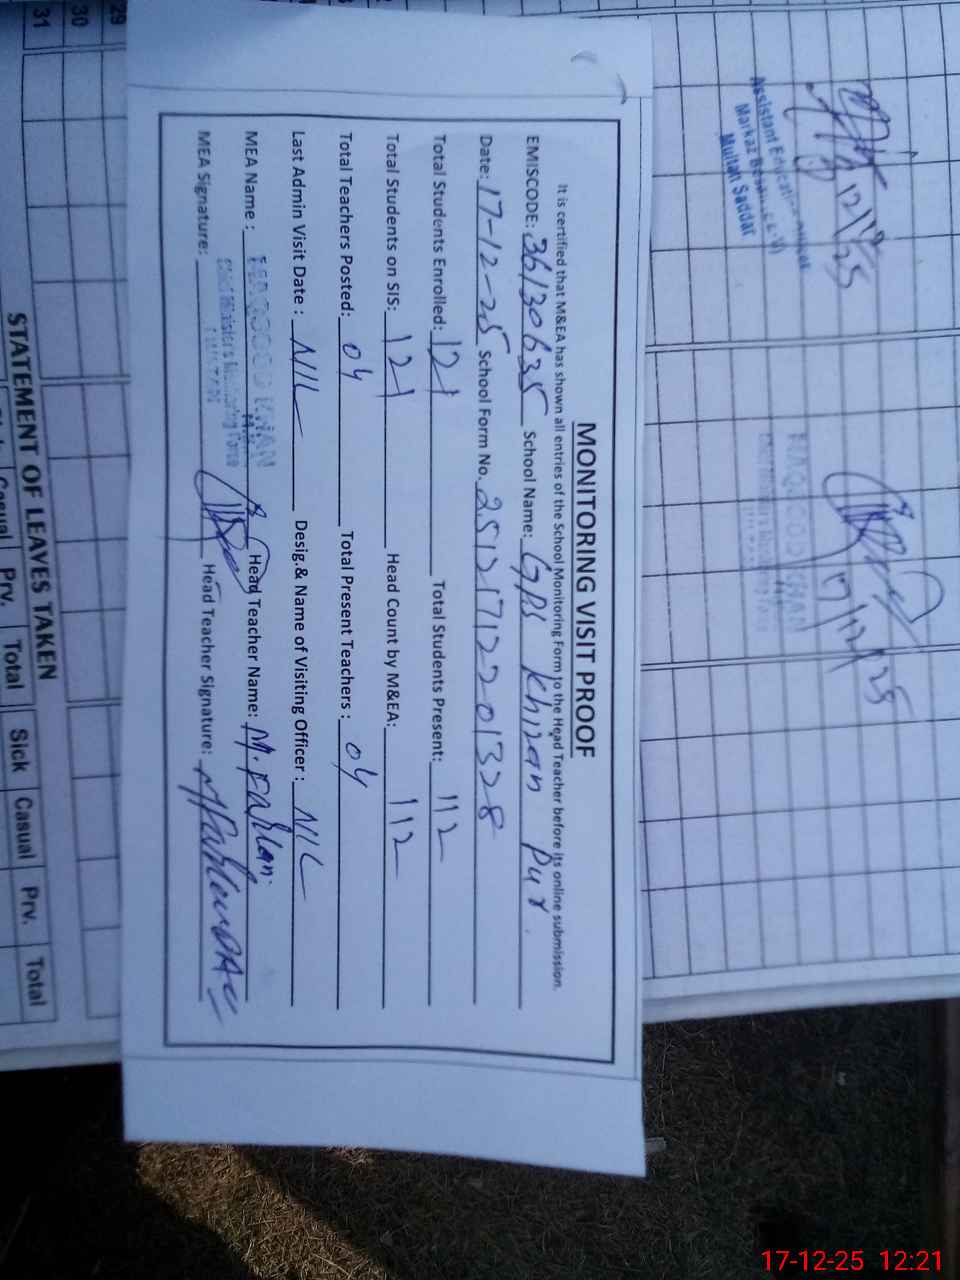 MONITORING VISIT PROOF
It is certified that M&EA has shown all entries of the School Monitoring Form to the Head Teacher before its online submission.
EMISCODE: 36130635 School Name: GPS Khizan Pur.
Date: 17-12-25 School Form No. 25121712201328
Total Students Enrolled: 121 Total Students Present: 112
Total Students on SIS: 121 Head Count by M&EA: 112
Total Teachers Posted: 04 Total Present Teachers: 04
Last Admin Visit Date: NIL Desig.& Name of Visiting Officer: NIL
MEA Name: HAQOOQ KHAN Head Teacher Name: M. Farhan.
Chief Minister's Monitoring Force
MEA Signature: Head Teacher Signature:
Assistant Education
Markaz
Multan Saddar
12/25
KHAN
17/12/25
29
30
31
STATEMENT OF LEAVES TAKEN
Casual Prv. Total Sick Casual Prv. Total
17-12-25 12:21